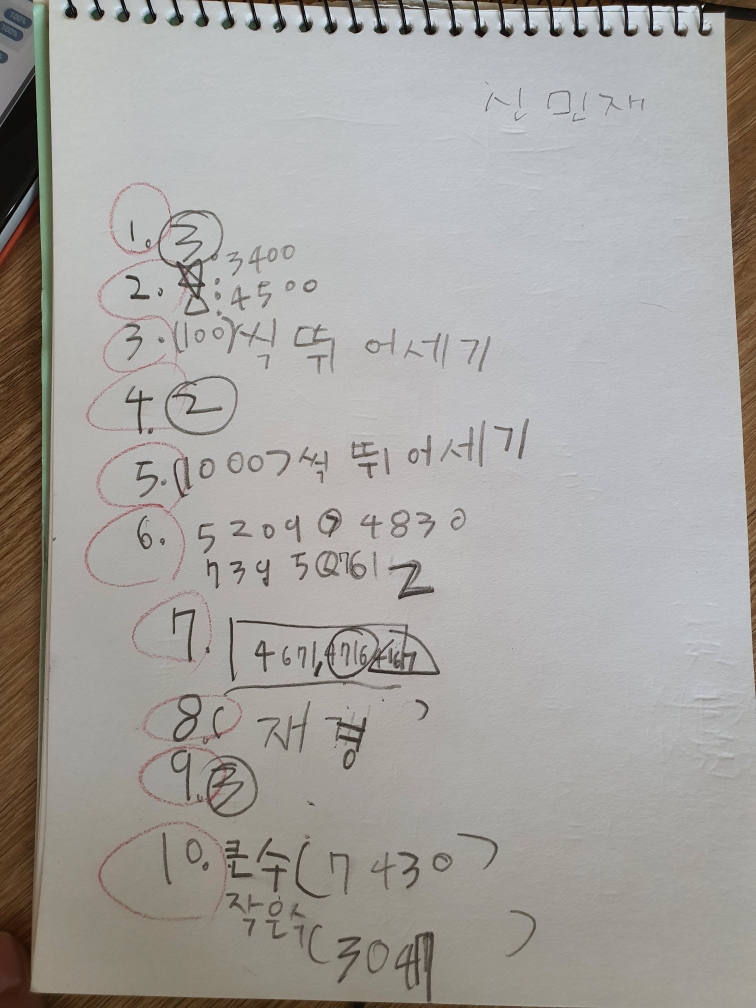 신민재
1. ③
: 3400
2. : 4500
3. (100)식 뛰어세기
4. ②
5. (1000)씩 뛰어세기
6. 5209 > 4830
739 5 < 761 2
7. 4671, 4716 4167
8. ( 재경 )
9. ③
10. 큰수 (7430)
작은수 (3047)